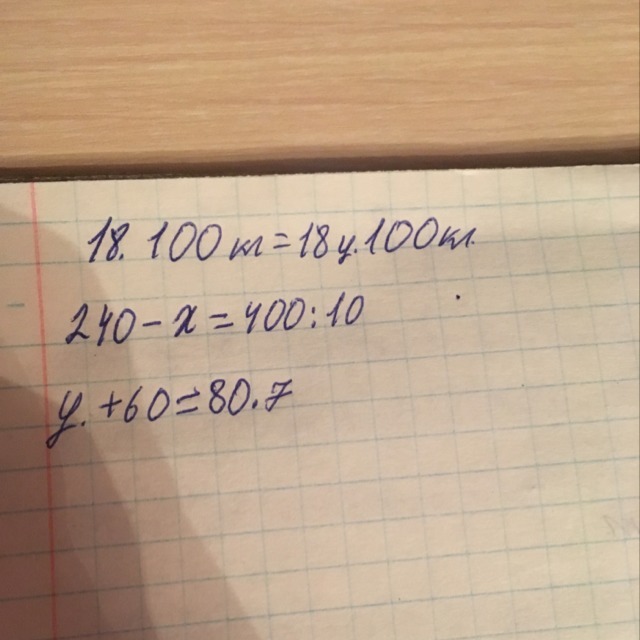 18. 100 кг = 18 ц. 100 кг.
240 - x = 400 : 10
y. + 60 = 80 . 7